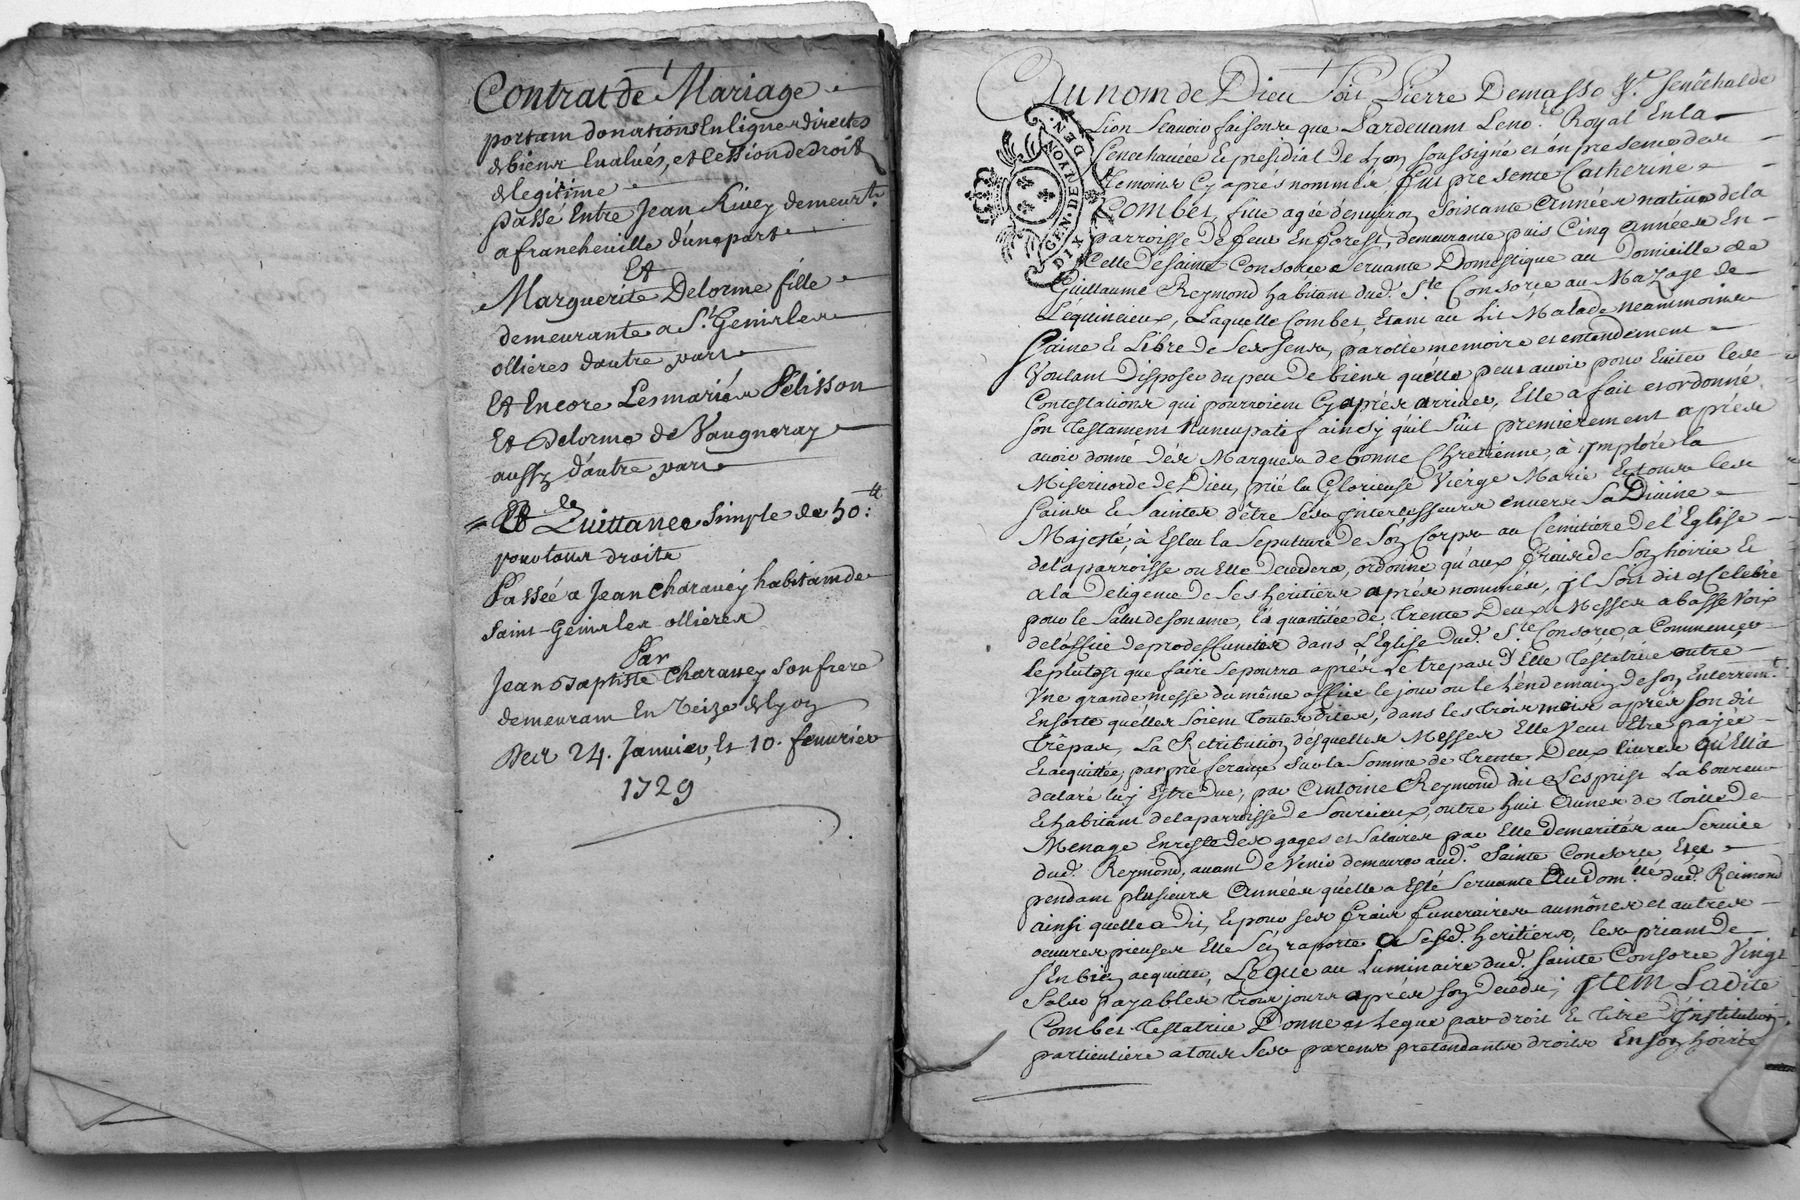 Contrat de Mariage
portam donations En ligne directes
& biens Evalués, et Cession de droits
& legitime
passé Entre Jean Rivey demeurt.
a francheville d'une part
Et
Marguerite Delorme fille
demeurante a St. Genis les
ollieres d'autre part
Et Encore Les mariés Pelisson
Et Delorme de Vaugneray
aussy d'autre part
Et de Quittance simple de 50:tt
pour tous droits
Passée a Jean Charavey habitam de
Saint-Genis les ollieres
Par
Jean Baptiste Charavey son frere
demeuram En Veize & lyon
Des 24. Janvier, Et 10. fevurier
1729
Au nom de Dieu soit Pierre Demasso Sr. senêchal de
Lion Scavoir faisons que Pardevant Le no.re Royal En la
Senechaucée Et presidial de Lyon soussigné et en presence des
Temoins Cy aprés nommés, fut presente Catherine
Combet, fille agée d'environ soixante Années native de la
parroisse de feur En forest, demeurante puis Cinq Années En
Celle de sainte Consorce servante Domestique au Domicille de
Guillaume Reymond habitam dud. Ste Consorce au Mazage de
Laquelle Combet, Etam au Lit Malade neammoins
saine Et Libre de ses sens, parolle memoire et entendement
Voulant disposer du peu de biens quelle peut avoir pour Eviter les
Contestations qui pourroient Cy aprés arriver, Elle a fait et ordonné
son Testament Nuncupatif ainsy qu'il suit premierement aprés
avoir donné des Marques de bonne Chretienne, à Imploré la
Misericorde de Dieu, prié la Glorieuse Vierge Marie Et tous les
saints Et saintes d'être ses Intercesseurs envers sa Divine
Majesté, à Esleu la sepulture de son Corps au Cemitiére de l'Eglise
de la parroisse ou Elle decedera, ordonne qu'aux frais de son hoirie Et
a la deligence de ses heritiers aprés nommés, Il soit dit et Celebré
pour le salut de son ame, la quantitée de Trente Deux Messes a basse Voix
de l'office de pro deffunctis dans L'Eglise dud. Ste Consorce, a Commencer
Le plutost que faire se pourra aprés Le trepas d'Elle Testatrice outre
Une grande messe du même office le jour ou le Lendemain de son Enterremt.
En sorte quelles soient Toutes dites, dans les Trois mois aprés son dit
Trêpas, La Retribution desquelles Messes Elle Veut Etre payée
Et acquittée, par preferance sur la somme de Trente Deux livres qu'Ell'a
declaré luy Estre due, par Antoine Reymond dit Lesprit Laboureur
Et habitam de la parroisse de Sourcieux, outre huit Aunes de Toille de
Menage En reste des gages et salaires par Elle demerités au service
dud. Reymond, avam de Venir demeurer aud. Sainte Consorce Etee
pendam plusieurs Années qu'elle a Esté servante Au dom.lle dud. Reimond
ainsi quelle a dit, Et pour ses frais funeraires aumônes et autres
oeuvres pieuses Elle s'en raporte a sesd. heritiers, les priam de
s'En bien acquitter, Legue au Luminaire dud. Sainte Consorce Vingt
sols payables trois jours aprés son decéds; Item Ladite
Combet Testatrice Donne et Legue par droit Et Titre d'Institution
particuliere a tous ses parens pretendants droits En son hoirie
GEN·DU·GEN·DE LYON
DIX DEN.